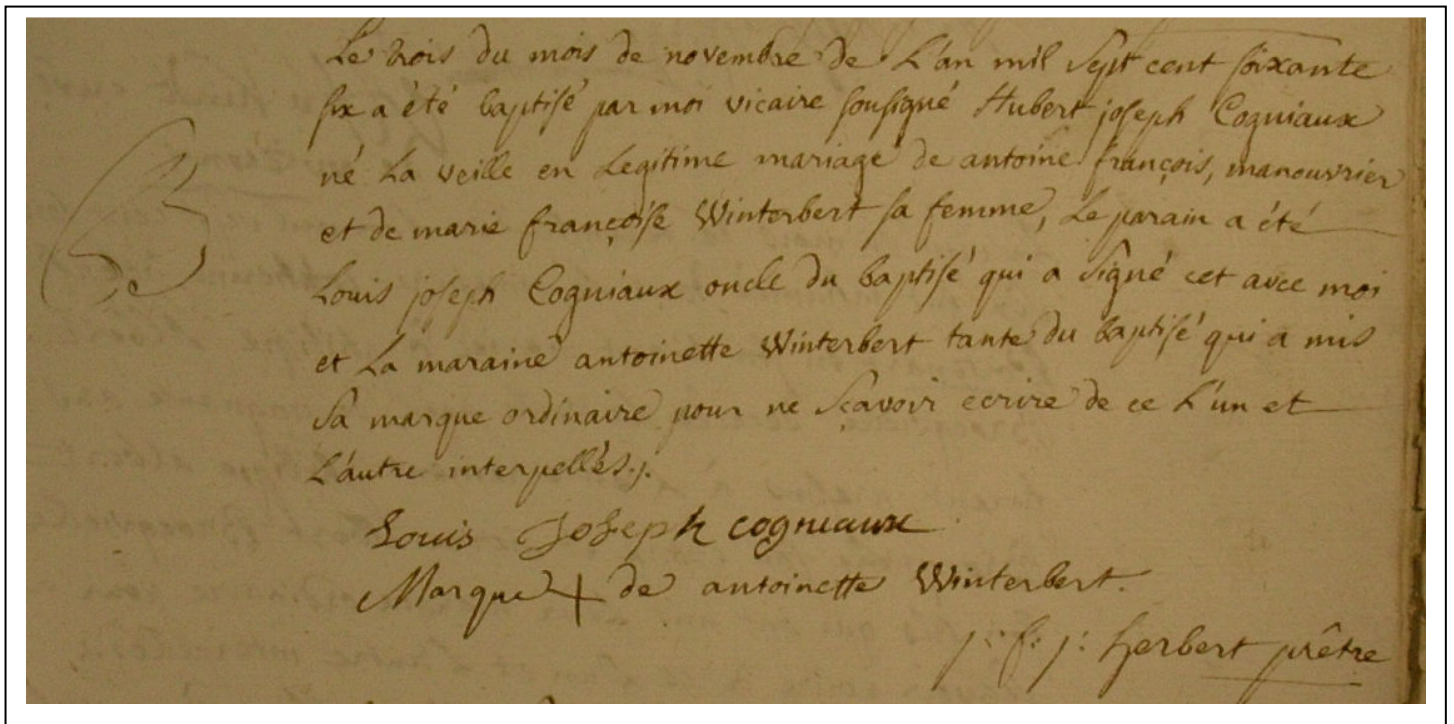 Le trois du mois de novembre de L'an mil sept cent soixante
six a été baptisé par moi vicaire sousigné Hubert joseph Cogniaux
né La veille en Legitime mariage de antoine françois, manouvrier
et de marie françoise Winterbert sa femme, Le parain a été
Louis joseph Cogniaux oncle du baptisé qui a signé cet avec moi
et La maraine antoinette Winterbert tante du baptisé qui a mis
sa marque ordinaire pour ne sçavoir ecrire de ce L'un et
L'autre interpellés./.
Louis Joseph cogniaux
Marque + de antoinette Winterbert.
j: f: j: herbert prêtre